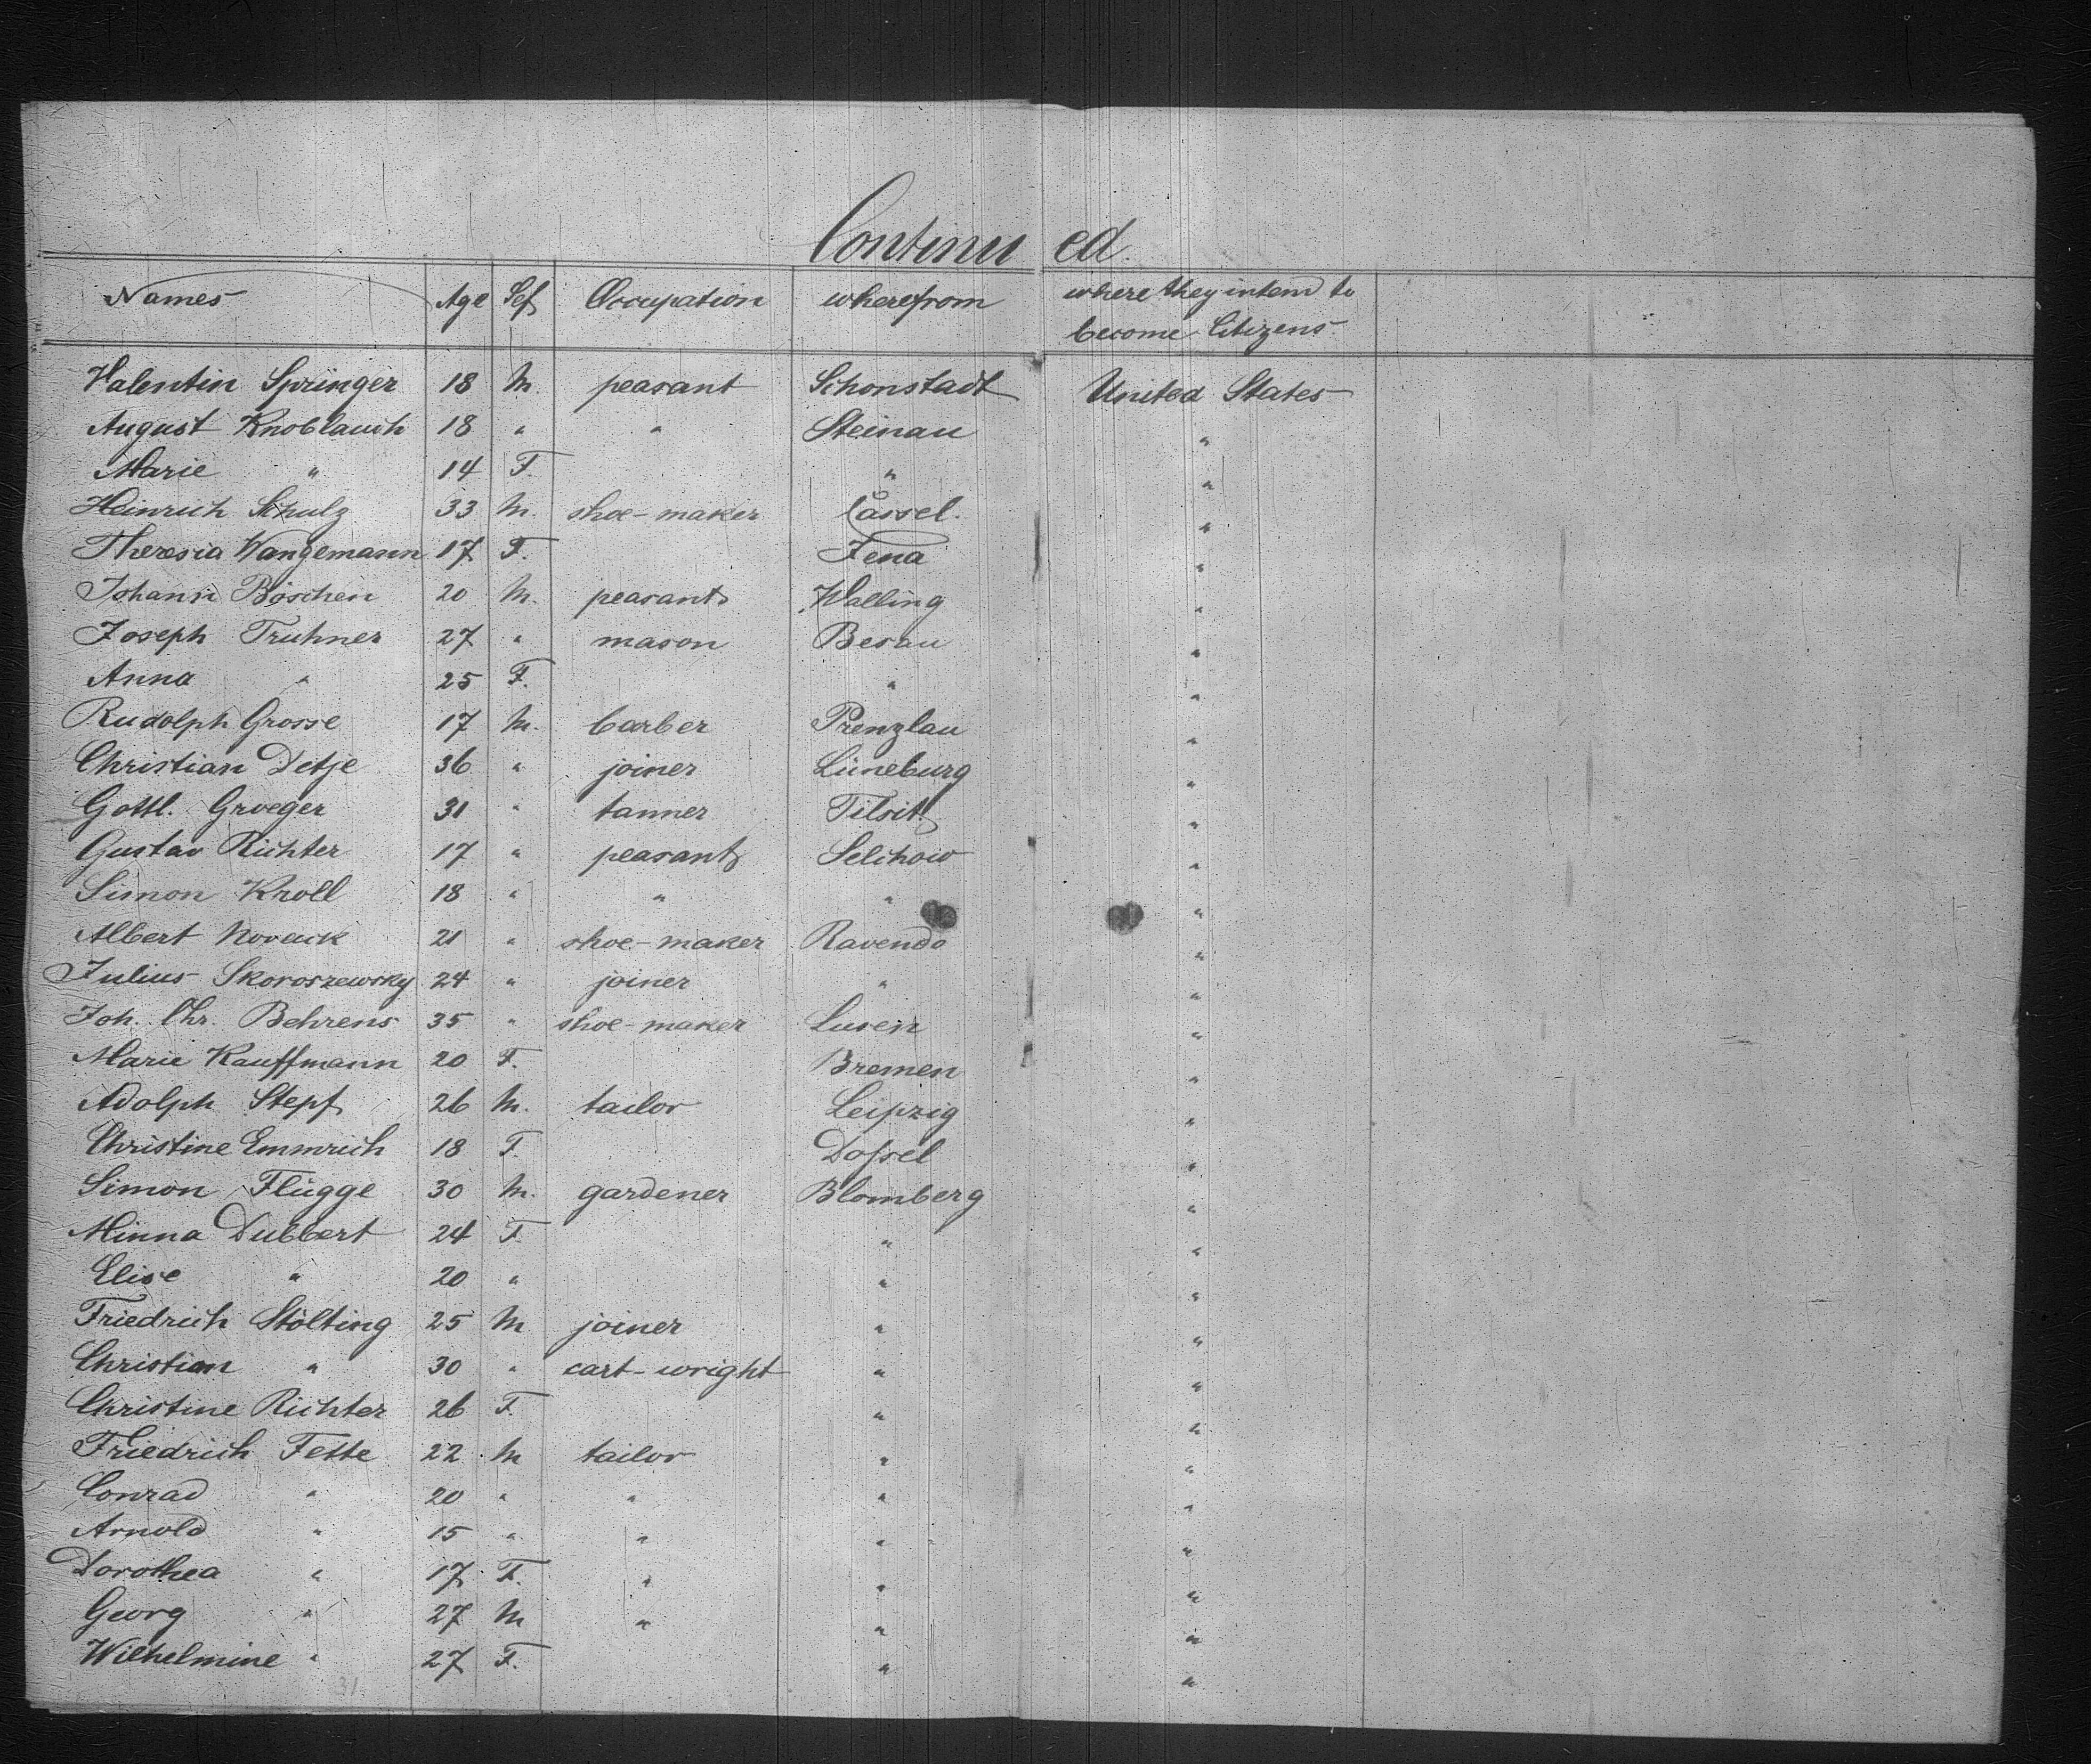 Continued.
Names Age Sex Occupation wherefrom where they intend to
become Citizens
Valentin Springer 18 M. peasant Schonstadt United States
August Knoblauch 18 " " Steinau "
Marie " 14 F. " "
Heinrich Schulz 33 M. shoe-maker Cassel. "
Theresia Wangemann 17 F. Jena "
Johann Böschen 20 M. peasant Walling "
Joseph Truhner 27 " mason Besau "
Anna " 25 F. " "
Rudolph Grosse 17 M. barber Prenzlau "
Christian Detje 36 " joiner Lüneburg "
Gottl. Groeger 31 " tanner Tilsit "
Gustav Richter 17 " peasant Selchow "
Simon Kroll 18 " " " "
Albert Novack 21 " shoe-maker Ravendo "
Julius Skoroszewsky 24 " joiner " "
Joh. Chr. Behrens 35 " shoe-maker Lusen "
Marie Kauffmann 20 F. Bremen "
Adolph Stepf 26 M. tailor Leipzig "
Christine Emmrich 18 F. Dassel "
Simon Flügge 30 M. gardener Blomberg "
Minna Dubbert 24 F. " "
Elise " 20 " " "
Friedrich Stölting 25 M joiner " "
Christian " 30 " cart-wright " "
Christine Richter 26 F. " "
Friedrich Fette 22 M tailor " "
Conrad " 20 " " " "
Arnold " 15 " " " "
Dorothea " 17 F. " " "
Georg " 27 M " " "
Wilhelmine " 27 F. " "
31